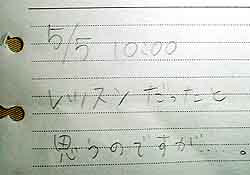 5/5 10:00
レッスンだったと
思うのですが……。